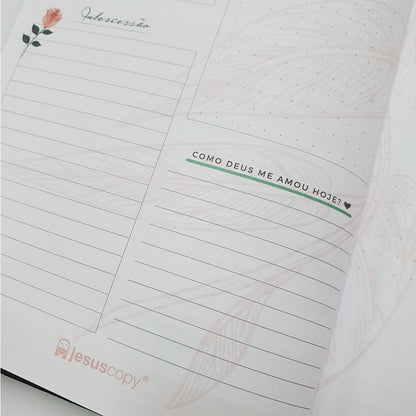 Intercessão
COMO DEUS ME AMOU HOJE? ♥
jesuscopy®